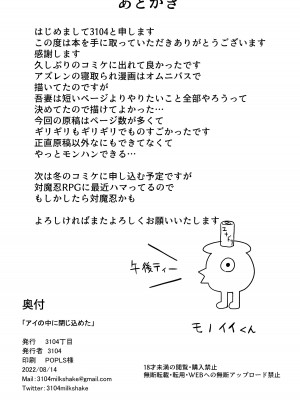 あとがき
はじめまして3104と申します
この度は本を手に取っていただきありがとうございます
感謝します
久しぶりのコミケに出れて良かったです
アズレンの寝取られ漫画はオムニバスで
描いてたのですが
吾妻は短いページよりやりたいこと全部やろうって
決めてたので描けてよかった…
今回の原稿はページ数が多くて
ギリギリもギリギリでものすごかったです
正直原稿以外なにもできてなくて
やっとモンハンできる…
次は冬のコミケに申し込む予定ですが
対魔忍RPGに最近ハマってるので
もしかしたら対魔忍かも
よろしければまたよろしくお願いいたします
午後ティー
モノイイくん
奥付
「アイの中に閉じ込めた」
発行 3104丁目
発行者 3104
印刷 POPLS様
2022/08/14
Mail : 3104milkshake@gmail.com
Twitter:3104milkshake
18才未満の閲覧・購入禁止
無断転載・転用・WEBへの無断アップロード禁止